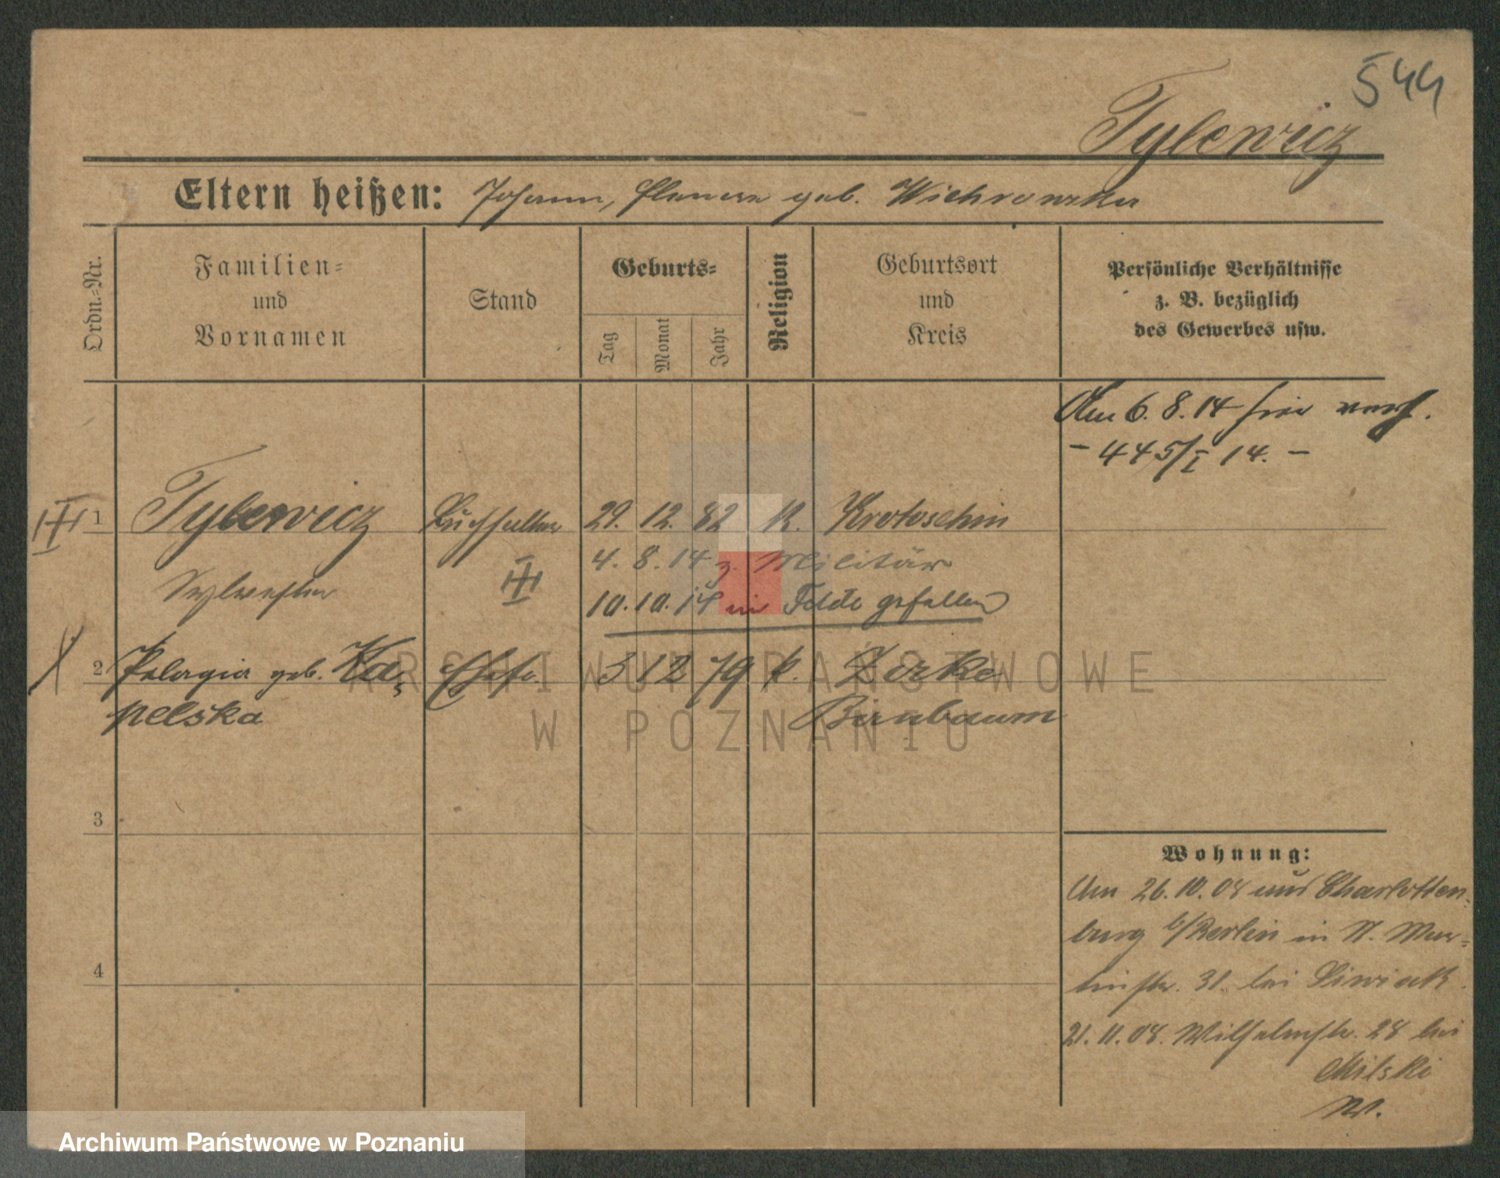 544
Tylewicz
Eltern heißen: Johann, geb. Wichrowska
Ordn.-Nr.
Familien-
und
Vornamen
Stand
Geburts-
Tag
Monat
Jahr
Religion
Geburtsort
und
Kreis
Persönliche Verhältnisse
z. B. bezüglich
des Gewerbes usw.
Am 6. 8. 14 hier
- 445/I 14. -
III
1 Tylewicz Buchhalter 29. 12. 82 K. Krotoschin
Sylvester III 4. 8. 14 z. Militär
10. 10. 14 in Felde gefallen
2 Pelagia geb. Ka- Ehefr. 3 12 79 k. Zirke
pelska Birnbaum
3
4
Wohnung:
Am 26. 10. 08 aus Charlotten-
burg b/Berlin in St. Mar-
tinstr. 31. bei Siwiak.
21. 11. 08. Wilhelmstr. 28 bei
Milski
W.
ARCHIWUM PAŃSTWOWE
W POZNANIU
Archiwum Państwowe w Poznaniu